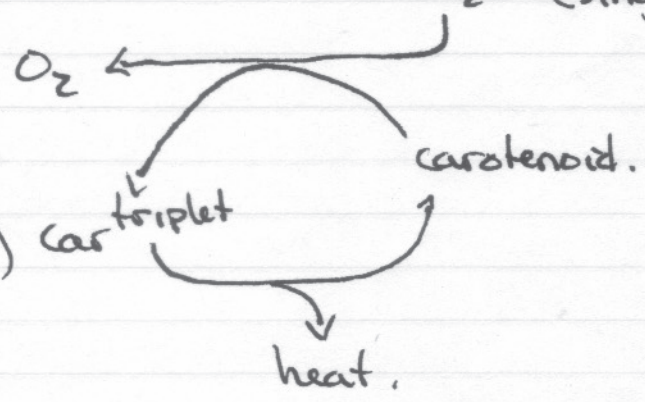 O₂
carotenoid.
) car triplet
heat.